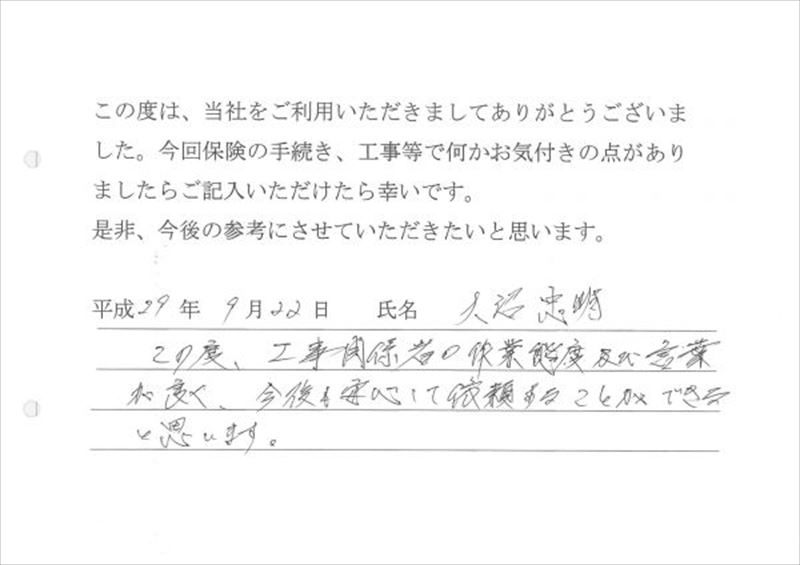 この度は、当社をご利用いただきましてありがとうございま
した。今回保険の手続き、工事等で何かお気付きの点があり
ましたらご記入いただけたら幸いです。
是非、今後の参考にさせていただきたいと思います。
平成29年 9月22日 氏名 大沼忠明
この度、工事関係者の作業態度及び言葉
が良く、今後も安心して依頼することができる
と思います。